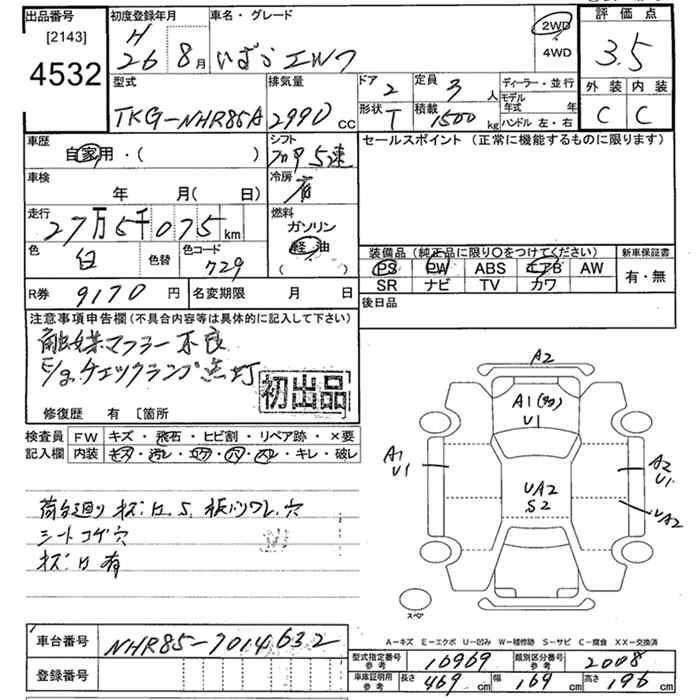 出品番号 [2143] 4532
初度登録年月 H 26 8月
車名・グレード いすゞエルフ
2WD 4WD
評価点 3.5
外装 内装 C C
型式 TKG-NHR85A
排気量 2990 CC
ドア 2
定員 3 人
形状 T
積載 1500 kg
ディーラー・並行
モデル年式 年
ハンドル 左・右
車歴 自家用・( )
シフト フロア 5速
セールスポイント (正常に機能するものに限ります)
車検 年 月( 日)
冷房 有
走行 27万5千075 km
燃料 ガソリン 軽油 ( )
色 白 色替
色コード 729
装備品 (純正品に限り○をつけてください)
PS PW ABS エアB AW
SR ナビ TV カワ
新車保証書 有・無
R券 9170 円
名変期限 月 日
後日品
注意事項申告欄 (不具合内容等は具体的に記入して下さい)
触媒マフラー不良
E/g チェックランプ点灯
初出品
修復歴 有 [箇所
検査員記入欄
FW キズ・飛石・ヒビ割・リペア跡・×要
内装 キズ・汚レ・コゲ・穴・スレ・キレ・破レ
荷台廻り キズ凹、S、板ツワレ、穴
シートコゲ穴
キズ凹有
A2
A1
U1
A1
U1
UA2
S2
A2
U1
UA2
スペア
A-キズ E-エクボ U-凹み W-補修跡 S-サビ C-腐食 XX-交換済
車台番号 NHR85-7014632
登録番号
型式指定番号 参考 16969
類別区分番号 参考 2008
車庫証明用 参考 長さ 469 cm 幅 169 cm 高さ 196 cm